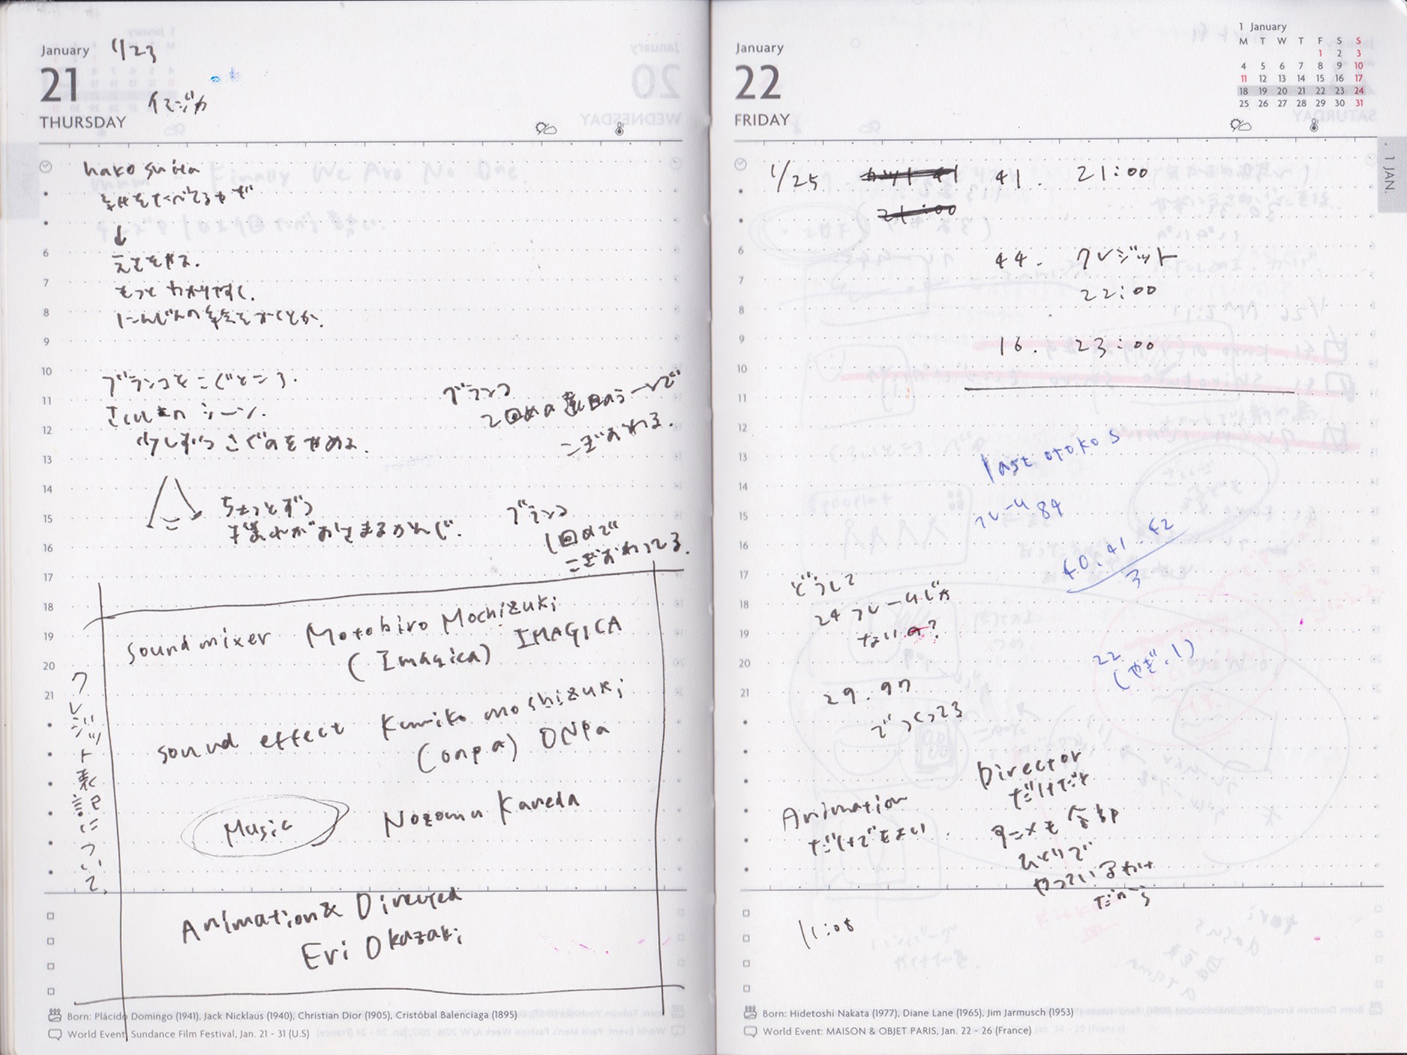 January 1/23
21
THURSDAY
イマジカ
hako suita
↓
もっと わかりやすく.
にんじんの絵をかくとか.
ブランコをこぐところ.
さいしょの シーン.
少しずつ こぐのをやめる.
ブランコ
2回めの
こぎおわる.
ちょっとずつ
ブランコ
1回めで
こぎおわってる.
6
7
8
9
10
11
12
13
14
15
16
17
18
19
20
21
クレジット表記について.
sound mixer Motohiro Mochizuki
(Imagica) IMAGICA
sound effect Kumiko moshizuki
(onpa) ONPa
Music Nozomu Kaneda
Animation & Directed
Eri Okazaki
Born: Plácido Domingo (1941), Jack Nicklaus (1940), Christian Dior (1905), Cristóbal Balenciaga (1895)
World Event: Sundance Film Festival, Jan. 21 - 31 (U.S)
January
22
FRIDAY
1 January
M T W T F S S
1 2 3
4 5 6 7 8 9 10
11 12 13 14 15 16 17
18 19 20 21 22 23 24
25 26 27 28 29 30 31
1 JAN.
1/25 カット41 41. 21:00
21:00
44. クレジット
22:00
16. 23:00
6
7
8
9
10
11
12
13
14
15
16
17
18
19
20
21
last otoko s
フレーム 84
40. 41. 42
3
どうして
24フレームじゃ
ないの?
22
29.97
でつくってる
Director
だけだと
Animation
だけでもよい.
アニメも全部
ひとりで
やっているわけ
だから
11:08
Born: Hidetoshi Nakata (1977), Diane Lane (1965), Jim Jarmusch (1953)
World Event: MAISON & OBJET PARIS, Jan. 22 - 26 (France)